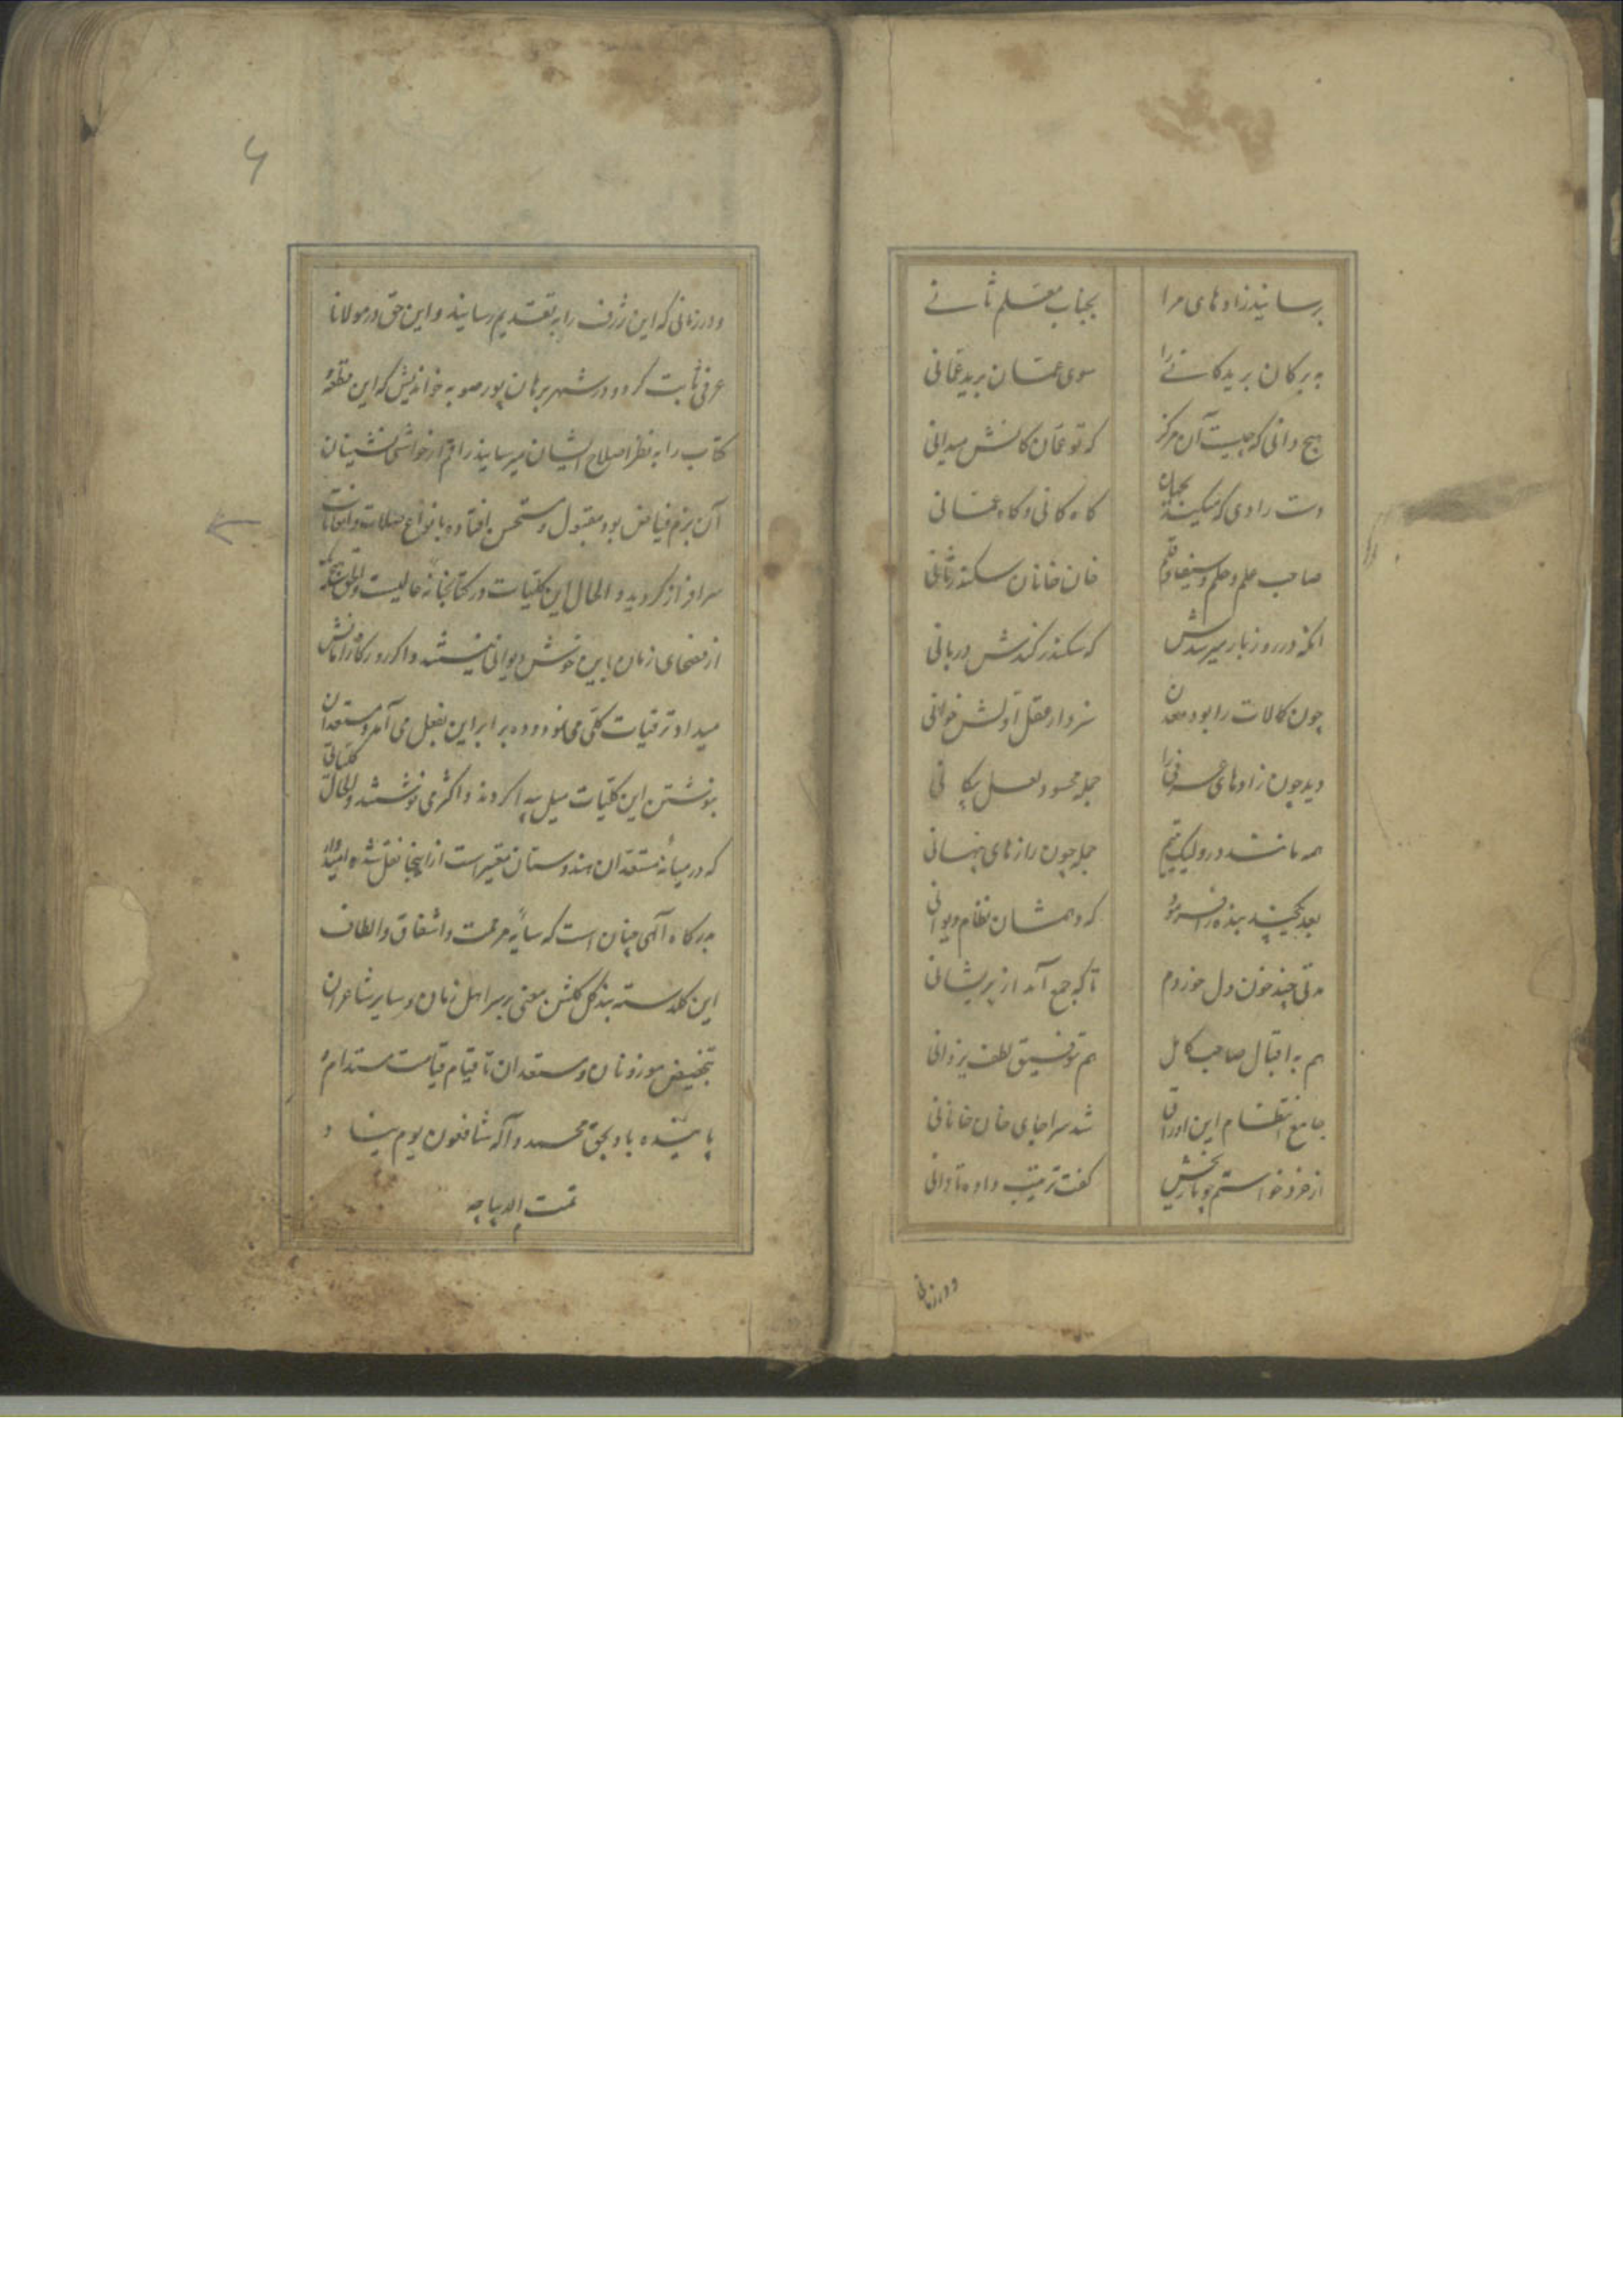 برسانید زادهای مرا بجناب معلم ثانے
به برکان برید کانے را سوی عمان برید عمانی
هیچ دانی که چیست آن مرکز که تو عمان کانش میدانی
دست رادی که میکند بجهان کاه کانی و کاه عمانی
صاحب علم و حلم و سیف و قلم خان خانان سکندر ثانی
انکه در روز بار میرسدش که سکندر کندش دربانی
چون کمالات را بود معدن سزد ار عقل اولش خوانی
دید چون زادهای عرفی را جمله محسود لعل پیکانی
همه مانند در ولیک یتیم جمله چون رازهای پنهانی
بعد یکچند بنده را فرمود که دهمشان نظام دیوانی
مدتی چند خون دل خوردم تا که جمع آمد از پریشانی
هم به اقبال صاحب کامل هم بتوفیق لطف یزدانی
جامع انتظام این اوراق شد سراجای خان خانانی
از خرد خواستم چو تاریخش کفت ترتیب داده نادانی
و در زمانی
۶
و در زمانی که این ژرف را به تقدیم رسانید و این حق در مولانا
عرفی ثابت کرد و در شهر برهان پور صوبه خواندیش که این قطعهٔ
کتاب را به نظر اصلاح ایشان میرسانید راقم از حواشی نشینان
آن بزم فیاض بود مقبول و مستحسن افتاده بانواع صلات و انعامات
سرافراز کردید و الحال این کلیات در کتابخانه عالیست و الحق هیچکه
از فصحای زمان باین خوش دیوانی نیستند و اکر روزکار امانش
میداد ترقیات کلی می نمود و ده برابر این بفعل می آمد و مستعدان
بنوشتن این کلیات میل پیدا کردند و اکثری نوشتند و الحال کلیاتی
که در میانهٔ مستعدان هندوستان معتبر است از اینجا نقل شده امیدوار
بدرکاه آلهی چنان است که سایهٔ مرحمت و اشفاق و الطاف
این کلدسته بند کل کلشن معنی بر سر اهل زمان و سایر شاعران
بتخصیص موزونان و مستعدان تا قیام قیامت مستدام و
پاینده باد بحق محمد و آله شافعون یوم یناد
تمت الدیباجه